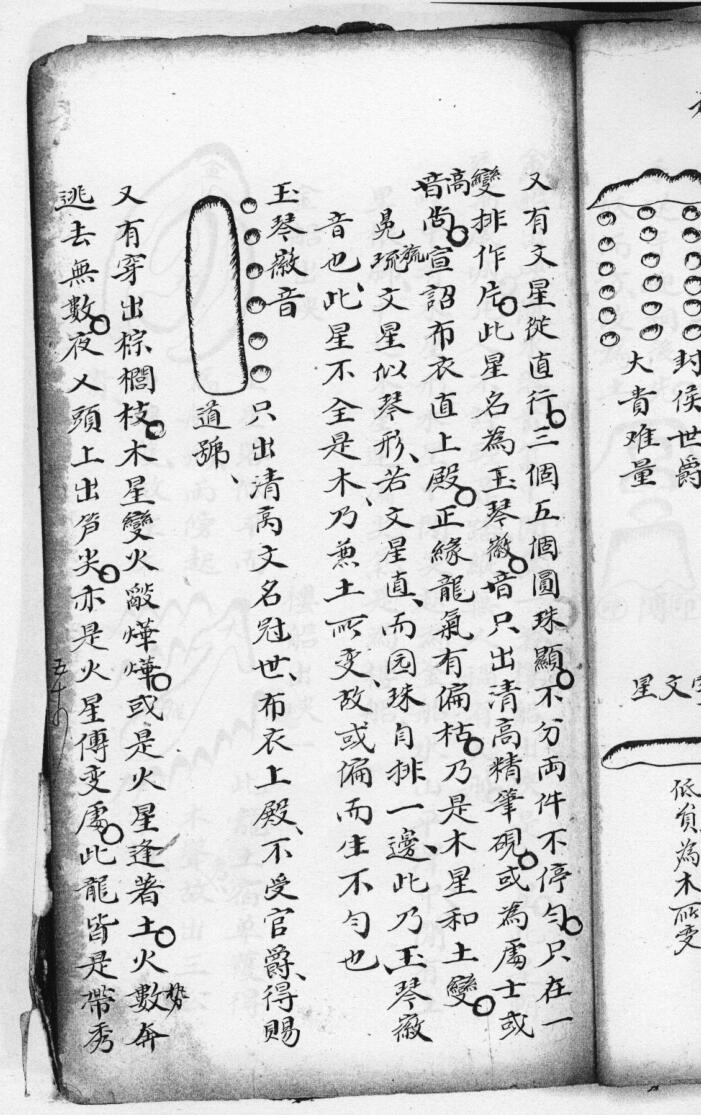 封侯世爵
大貴难量
文星
低負為木所变
又有文星從直行○三個五個圓珠顯○不分両件不停勻○只在一
變排作片○此星名為玉琴徽○音只出清高精筆硯○或為處士或
音高尚○宣詔布衣直上殿○正緣龍氣有偏枯○乃是木星和土變○
晃琉旒文星似琴形、若文星直、而园珠自排一邊、此乃玉琴徽
音也、此星不全是木、乃兼土所变、故或偏而生不勻也
玉琴徽音
只出清高文名冠世、布衣上殿、不受官爵、得賜
道號、
又有穿出棕櫚枝○木星變火敲燁燁○或是火星逢着土○火數勢奔
逃去無數○夜乂頭上出笋尖○亦是火星傳变處○此龍皆是帶秀